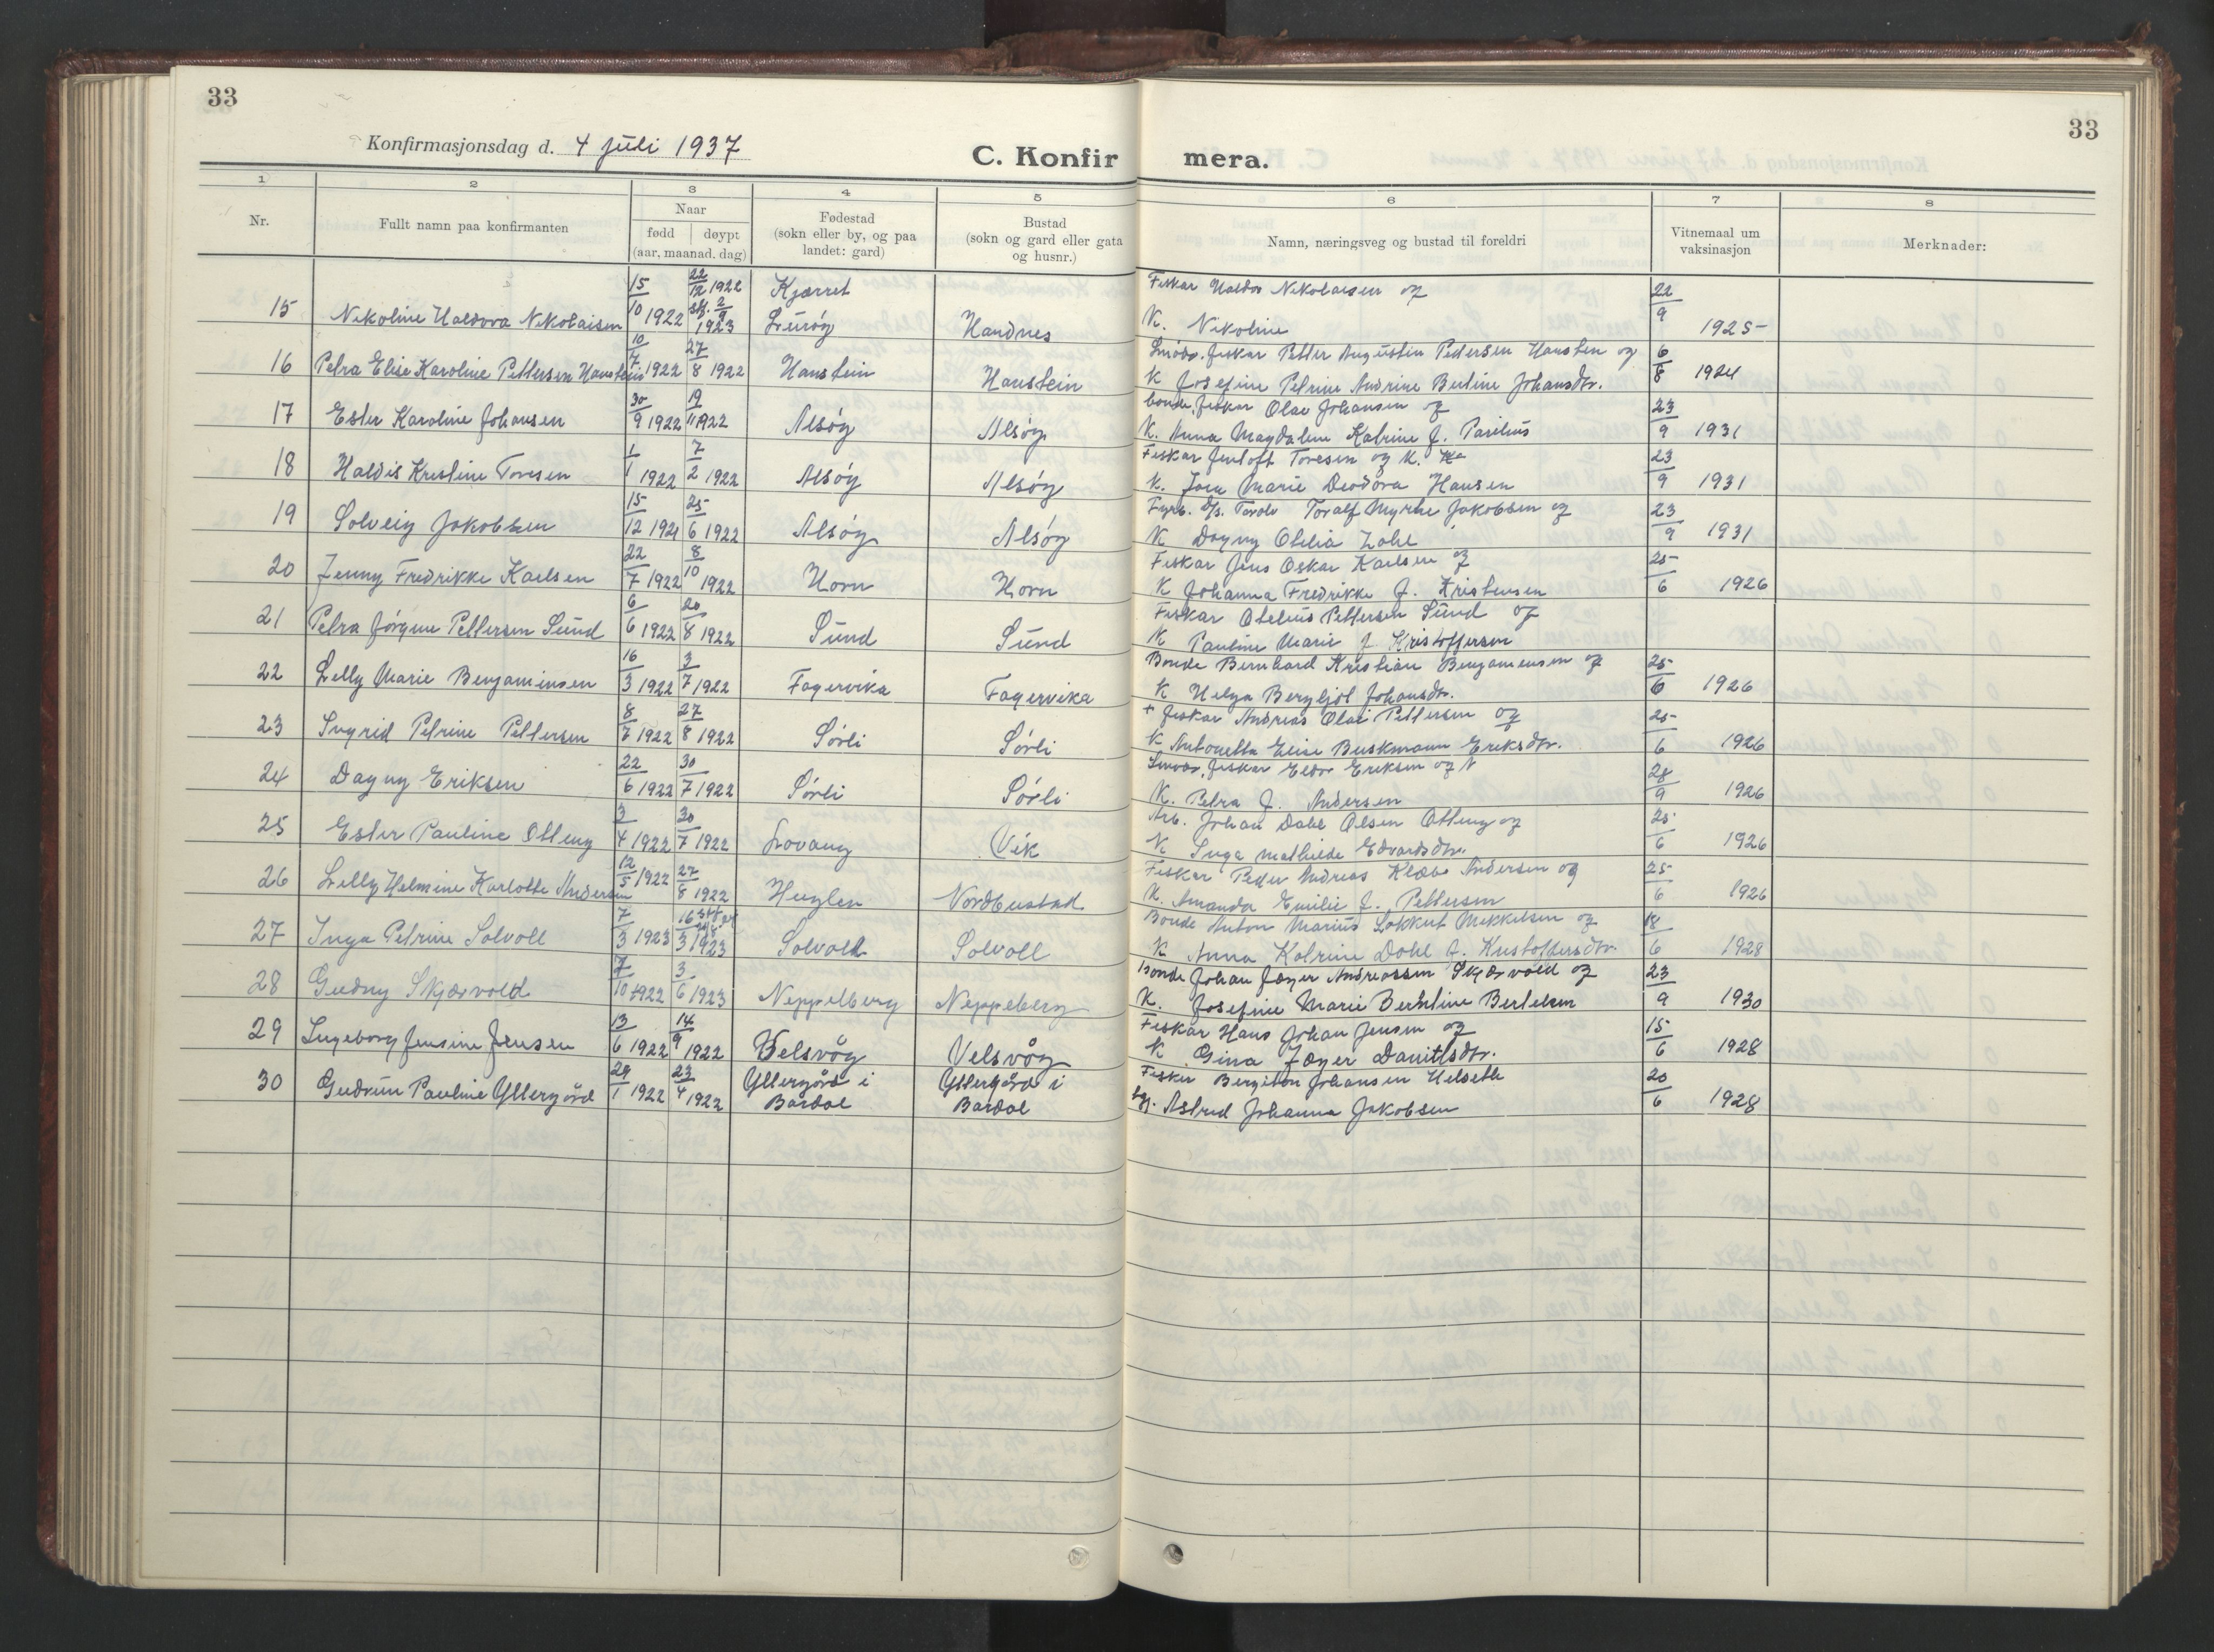 33
33
Konfirmasjonsdag d. 4 juli 1937
C. Konfirmera.
1 2 3 4 5 6 7 8
Nr.
Fullt namn paa konfirmanten
Naar
fødd døypt
(aar, maanad. dag)
Fødestad
(sokn eller by, og paa
landet: gard)
Bustad
(sokn og gard eller gata
og husnr.)
Namn, næringsveg og bustad til foreldri
Vitnemaal um
vaksinasjon
Merknader:
15 Nikoline Haldora Nikolaisen 15/10 1922 22/12 1922 2/9 1923 Kjærret Lurøy Handnes Fiskar Haldor Nikolaisen og K. Nikoline 22/9 1925
16 Petra Elise Karoline Pettersen Haustein 10/7 1922 27/8 1922 Haustein Haustein Småbr. fiskar Petter Augustin Pedersen Haustein og K Josefine Petrine Andrine Bertine Johansdtr. 6/8 1924
17 Ester Karoline Johansen 30/9 1922 19/11 1922 Alsøy Alsøy bonde, fiskar Olav Johansen og K. Anna Magdalene Katrine f. Parelius 23/9 1931
18 Haldis Kristine Toresen 1/1 1922 7/2 1922 Alsøy Alsøy Fiskar Jentoft Toresen og K. K. Marie Deodora Hansen 23/9 1931
19 Solveig Jakobsen 15/12 1921 25/6 1922 Alsøy Alsøy Fyrb. D/S. Torolv Toralf Myrhe Jakobsen og K Dagny Otelia Zahl 23/9 1931
20 Jenny Fredrikke Karlsen 22/7 1922 8/10 1922 Horn Horn Fiskar Jens Oskar Karlsen og K Johanna Fredrikke f. Kristensen 25/6 1926
21 Petra Jørgine Pettersen Sund 6/6 1922 20/8 1922 Sund Sund Fiskar Otelius Pettersen Sund og K Pauline Marie f. Kristoffersen
22 Lelly Marie Benjaminsen 16/3 1922 3/7 1922 Fagervika Fagervika Bonde Bernhard Kristian Benjaminsen og K Helga Bergljot Johansdtr. 25/6 1926
23 Ingrid Petrine Pettersen 8/7 1922 27/8 1922 Sørli Sørli + fiskar Andreas Olai Pettersen og K Antonetta Elise Buskmann Eriksdtr. 25/6 1926
24 Dagny Eriksen 22/6 1922 30/7 1922 Sørli Sørli Småbr. fiskar Eldor Eriksen og K. Petra f. Andersen 28/9 1926
25 Ester Pauline Olteng 3/4 1922 30/7 1922 Lovang Vik Arb. Johan Dahl Olsen Olteng og K Inga Mathilde Edvardsdtr. 25/6 1926
26 Lelly Helmine Karlotte Andersen 12/5 1922 27/8 1922 Huglen Nordbustad Fiskar Peder Andreas Klæbo Andersen og K. Amanda Emilie f. Pettersen 25/6 1926
27 Inga Petrine Solvoll 7/3 1923 16/3 1923 Solvoll Solvoll Bonde Anton Marius Mikkelsen og K Anna Katrine Dahl f. Kristoffersdtr. 18/6 1928
28 Gudny Skjærvold 7/10 1922 3/6 1923 Neppelberg Neppeberg Bonde Johan Jæger Andreassen Skjærvold og K. Josefine Marie Berntine Bertelsen 23/9 1930
29 Ingeborg Jensine Jensen 13/6 1922 14/9 1922 Velsvåg Velsvåg Fiskar Hans Johan Jensen og K Gina Jæger Danielsdtr. 15/6 1928
30 Gudrun Pauline Yttergård 29/1 1922 23/4 1922 Yttergård i Bardal Yttergård i Bardal Fisker Bergiton Johansen Helseth Astrid Johanna Jakobsen 20/6 1928